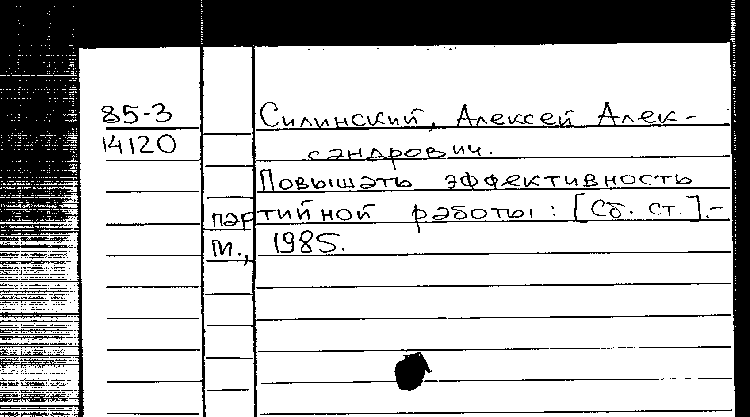 85-3 Силинский, Алексей Алек-
14120 сандрович.
Повышать эффективность
партийной работы: [Сб. ст.].-
М., 1985.